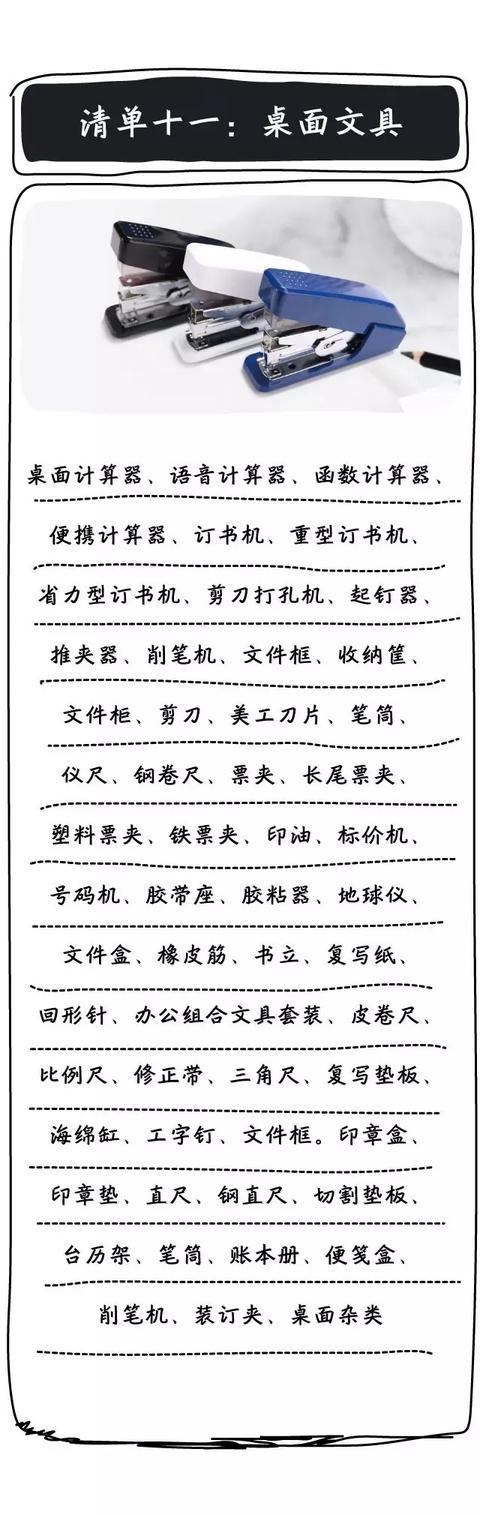 清单十一：桌面文具
桌面计算器、语音计算器、函数计算器、
便携计算器、订书机、重型订书机、
省力型订书机、剪刀打孔机、起钉器、
推夹器、削笔机、文件框、收纳筐、
文件柜、剪刀、美工刀片、笔筒、
仪尺、钢卷尺、票夹、长尾票夹、
塑料票夹、铁票夹、印油、标价机、
号码机、胶带座、胶粘器、地球仪、
文件盒、橡皮筋、书立、复写纸、
回形针、办公组合文具套装、皮卷尺、
比例尺、修正带、三角尺、复写垫板、
海绵缸、工字钉、文件框。印章盒、
印章垫、直尺、钢直尺、切割垫板、
台历架、笔筒、账本册、便笺盒、
削笔机、装订夹、桌面杂类